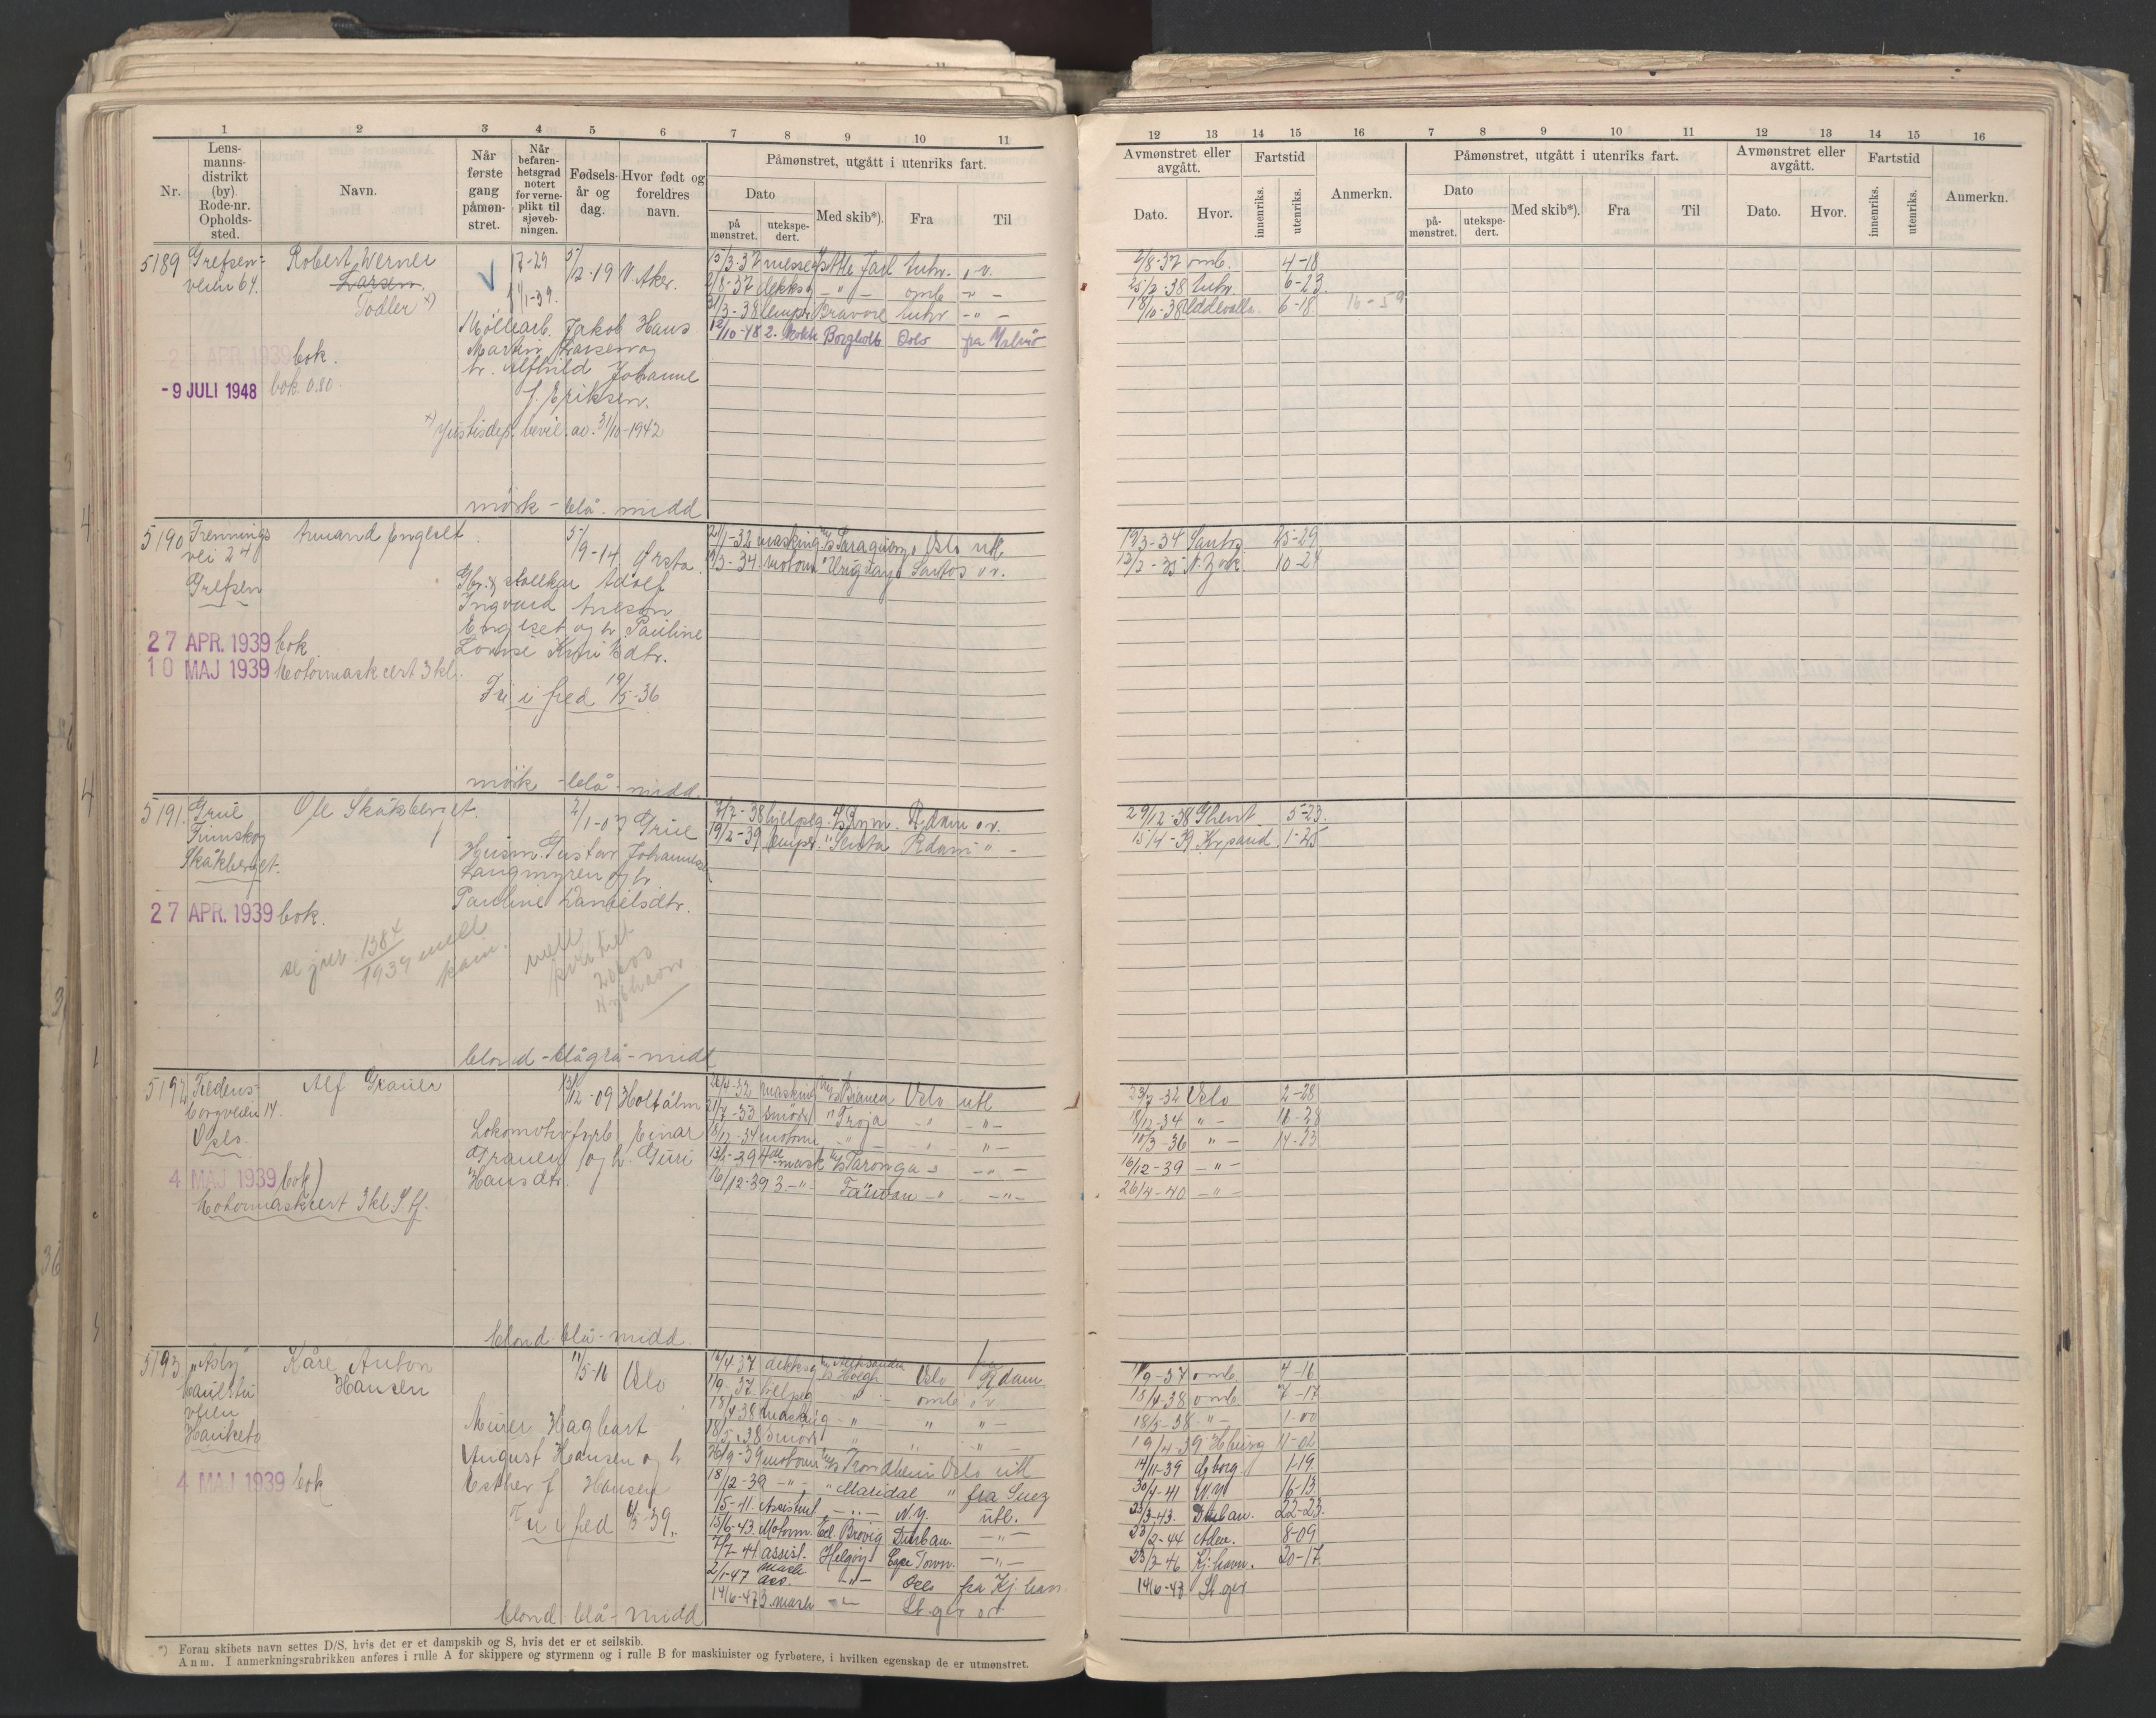 1 2 3 4 5 6 7 8 9 10 11
Nr.
Lens-
manns-
distrikt
(by)
Rode-nr.
Opholds-
sted.
Navn.
Når
første
gang
påmøn-
stret.
Når
befaren-
hetsgrad
notert
for verne-
plikt til
sjøveb-
ningen.
Fødsels-
år og
dag.
Hvor født og
foreldres
navn.
Påmønstret, utgått i utenriks fart.
Dato
på
mønstret.
utekspe-
dert.
Med skib*).
Fra
Til
12 13 14 15 16 7 8 9 10 11 12 13 14 15 16
Avmønstret eller
avgått.
Dato.
Hvor.
Fartstid
innenriks.
utenriks.
Anmerkn.
Påmønstret, utgått i utenriks fart.
Dato
på-
mønstret.
utekspe-
dert.
Med skib*).
Fra
Til
Avmønstret eller
avgått.
Dato.
Hvor.
Fartstid
innenriks.
utenriks.
Anmerkn.
5189 Grefsen-
veien 64.
Robert Werner
Larsen
Todler x)
17-29
1/1-39.
5/12-19 V. Aker.
Møllearb. Jakob Hans
Martin Larsen og
h. Alfhild Johanne
f. Eriksen.
25 APR. 1939 bok.
-9 JULI 1948 bok 0.80
x) Justisdep. bevil. av 31/10-1942
mørk - blå - midd
15/3-37 Jarl
2/8-37 dekksg -"- omb -"-
31/3-38 lemper Bravore -"-
12/10-48 2. kokk Borgholt Oslo fra Malmö
2/8-37 omb. 4-18
25/2-38 6-23
18/10-38 Uddevalla 6-18 16-59
5190
vei 24
Grefsen
Armand Engeset
5/9-14 Ørsta
Adolf
Ingvard
Engeset og h. Pauline
Lovise
27 APR. 1939 bok
10 MAJ 1939 Motormask cert 3 kl.
Fri i fred 19/5-36
mørk - blå - midd.
21/1-32 masking M/S Paraguay Oslo utl
19/3-34 motorm " Uruguay Santos o.v.
19/3-34 Santos 25-29
13/2-35 N. York 10-24
5191. Grue
Finnskog
Skåkberget.
Ole Skåkberget.
2/1-07 Grue
Husm. Gustav Johannesen
Langmyren og h.
Pauline Danielsdtr.
27 APR. 1939 bok.
se jnr. 1384/1939
blond - blågrå - midd
7/7-38 hjelpeg. D/S Rym. Rdam o.v.
19/2-39 lemper. " Senta Rdam " -
29/12-38 Ghent 5-23.
15/4-39 Kr.sand 1-25
5192 Fredens-
borgveien 14.
Oslo.
Alf Grauer
13/12-09 Holtålen
Lokomotivfyrb. Einar
Grauer og h. Guri
Hansdtr.
4 MAJ 1939 bok)
Motormaskcert 3kl
blond - blå - midd.
26/4-32 masking M/S Oslo utl
21/7-33 smører " Troja -" -"-
18/12-34 motorm -"- " "-
13/5-39 4de mask M/S Taronga -" -"-
16/12-39 3. -"- Taiwan -"- -"-
23/7-32 Oslo 2-28
18/12-34 " - 16-28
10/3-36 " - 14-23
16/12-39 -"-
26/4-40 -"-
5193. "Åsly"
veien
Hauketo
Kåre Anton
Hansen
11/5-18 Oslo
Murer Hagbart
August Hansen og h
Esther f. Hansen
4 MAJ 1939 bok
Fri i fred
blond - blå - midd
16/4-37 dekksg Oslo fra Rdam
1/9-37 hjelpeg " - omb o.v.
18/4-38 masking -"- " "-
18/5-38 smører " " -"-
26/9-39 motorm M/S Trondheim Oslo utl
18/12-39 -"- " Mariedal " fra Suez
1/5-41. Assistent -"- N.Y. utl.
15/6-43. Motorm. Ed. Brøvig Durban. -"-
7/7-44 assist. Helgøy Cape Town. -"-
2/1-47 Mask ass. -"- Oslo fra Kj.havn
14/6-47 3. mask -"- St.ger o.v.
1/9-37 omb. 4-16
18/4-38 omb 7-17
18/5-38 " - 1-00
19/4-39 Hburg 11-02
14/11-39 1-19.
30/4-41 N.Y. 16-13
23/3-43. Durban. 22-23.
23/2-44 Aden. 8-09
23/3-46 Kj.havn. 20-17
14/6-47 St.ger
*) Foran skibets navn settes D/S, hvis det er et dampskib og S, hvis det er et seilskib.
Anm. I anmerkningsrubrikken anføres i rulle A for skippere og styrmenn og i rulle B for maskinister og fyrbøtere, i hvilken egenskap de er utmønstret.